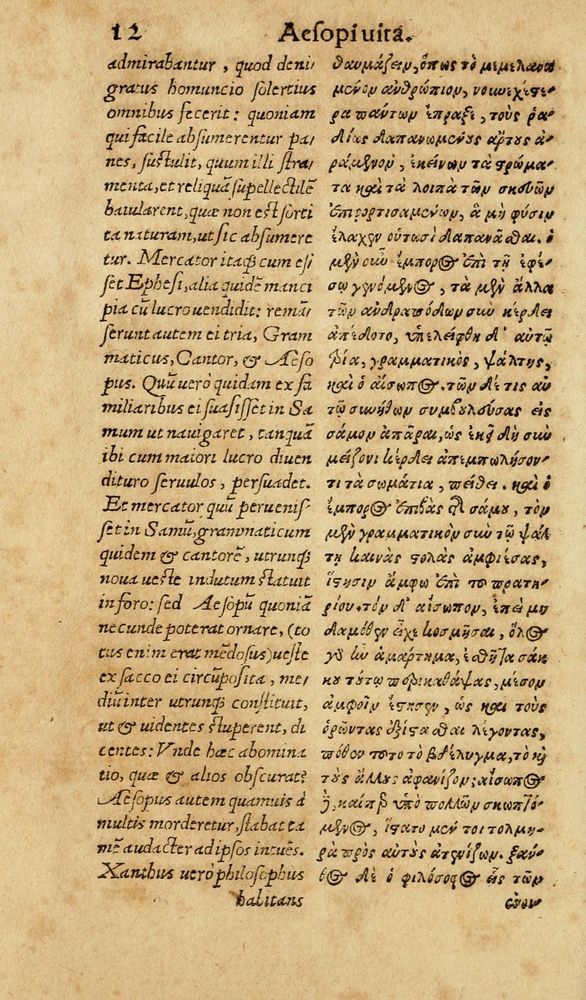 12 Aesopi vita.
admirabantur, quod deni/
gratus homuncio solertius
omnibus fecerit: quoniam
qui facile absumerentur pa/
nes, sustulit, quum illi stra/
menta, et reliquã supellectilẽ
baiularent, quæ non est sorti
ta naturam, ut sic absumere
tur. Mercator itaq; cum es/
set Ephesi, alia quidẽ manci
pia cũ lucro uendidit: remã/
serunt autem ei tria, Gram
maticus, Cantor, & Aeso
pus. Quũ uerò quidam ex fa
miliaribus ei suasisset in Sa
mum ut nauigaret, tanquã
ibi cum maiori lucro diuen
dituro seruulos, persuadet.
Et mercator quũ peruenis/
set in Samũ, grammaticum
quidem & cantorẽ, utrunq;
noua ueste indutum statuit
in foro: sed Aesopũ quoniã
necunde poterat ornare, (to
tus enim erat mẽdosus) ueste
ex sacco ei circũposita, me/
diũ inter utrunq; constituit,
ut & uidentes stuperent, di
centes: Vnde hæc abomina
tio, quæ & alios obscurat?
Aesopus autem quamuis à
multis morderetur, stabat ta
mẽ audacter ad ipsos intuẽs.
Xanthus uerò philosophus
halitans
θαυμάζειν, ὅπως τὸ μεμελανω
μένον ἀνθρώπιον, νουνεχέστε-
ρα πάντων ἔπραξε, τοὺς ῥα-
δίως δαπανωμένους ἄρτους ἀ-
ράμενον, ἐκείνων τὰ στρώμα-
τα καὶ τὰ λοιπὰ τῶν σκευῶν
ἐπιφορτισαμένων, ἃ μὴ φύσιν
ἔλαχεν οὑτωσὶ δαπανᾶσθαι. ὁ
μὲν οὖν ἔμπορος ἐπὶ τῇ ἐφέ-
σῳ γενόμενος, τὰ μὲν ἄλλα
τῶν ἀνδραπόδων σὺν κέρδει
ἀπέδοτο, ὑπελείφθη δ' αὐτῷ
τρία, γραμματικὸς, ψάλτης,
καὶ ὁ αἴσωπος. τῶν δέ τις αὐ
τῷ συνήθων συμβουλεύσας εἰς
σάμον ἀπᾶραι, ὡς ἐκεῖ δὴ σὺν
μείζονι κέρδει ἀπεμπωλήσον-
τι τὰ σωμάτια, πείθει. καὶ ὁ
ἔμπορος ἐπιβὰς τῆς σάμου, τὸν
μὲν γραμματικὸν σὺν τῷ ψάλ
τῃ καινὰς στολὰς ἀμφιέσας,
ἵστησιν ἄμφω ἐπὶ τοῦ πρατη-
ρίου. τὸν δ' αἴσωπον, ἐπεὶ μη
δαμόθεν εἶχε κοσμῆσαι, ὅλος
γὰρ ἦν ἁμάρτημα, ἐσθῆτα σάκ
κου τούτῳ περικαθάψας, μέσον
ἀμφοῖν ἔστησεν, ὡς καὶ τοὺς
ὁρῶντας ἐξίστασθαι λέγοντας,
πόθεν τοῦτο τὸ βδέλυγμα, τὸ καὶ
τοὺς ἄλλους ἀφανίζον; αἴσωπος
δὲ, καίπερ ὑπὸ πολλῶν σκωπτό-
μενος, ἵστατο μέν τοι τολμη-
ρὰ πρὸς αὐτοὺς ἀτενίζων. ξάν-
θος δὲ ὁ φιλόσοφος εἷς τῶν